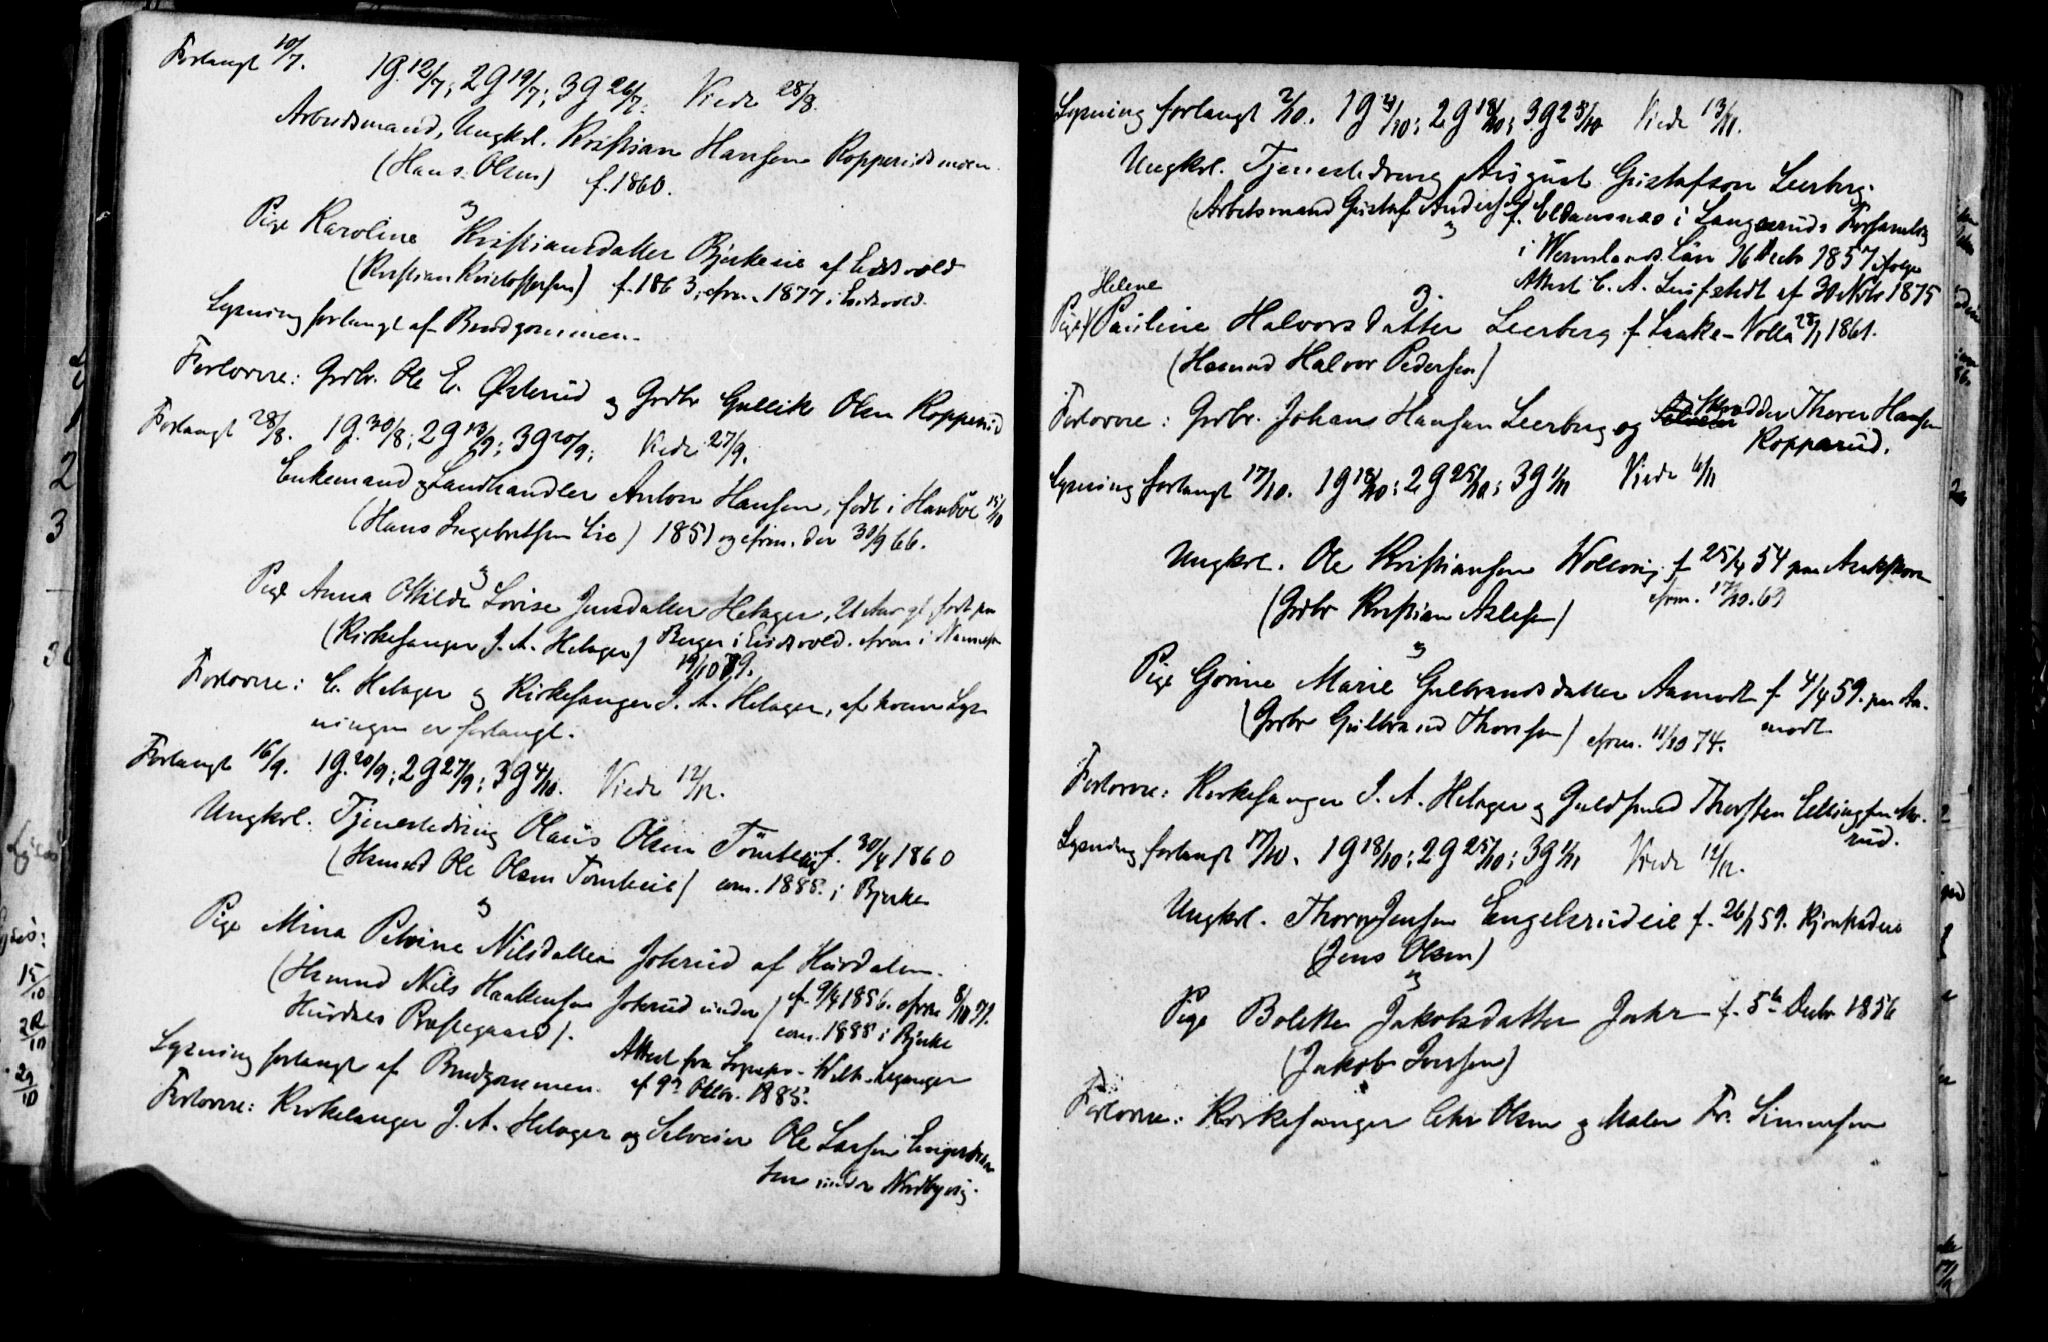 Forlangt 10/7. 1g. 12/7; 2g 19/7; 3g 26/7. Viede 28/8.
Arbeidsmand, Ungkrl. Kristian Hansen Kopperudsmoen
(Hans Olsen) f. 1860.
og
Pige Karoline Kristiansdatter Bjerkeeie af Eidsvold
(Kristian Kristoffersen) f. 1863, cfrm. 1877 i Eidsvold.
Lysning forlangt af Brudgommen.
Forlovere: Grdbr. Ole E. Østerud og Grdbr Gullik Olsen Kopperud
Forlangt 28/8. 1g. 30/8; 2g 13/9; 3g 20/9; Viede 27/9.
Enkemand og Landhandler Anton Hansen, født i 15/10
(Hans Ingebretsen Lie) 1851 og cfrm. den 30/9 66.
og
Pige Anna Othilde Lovise Jensdatter Helager, 21 Aar gl. født paa
(Kirkesanger J. A. Helager) Berger i Eidsvold. cfrm i Nannestad
19/10 79.
Forlovere: C. Helager og Kirkesanger J. A. Helager, af hvem Lys-
ningen er forlangt.
Forlangt 16/9. 1g. 20/9; 2g 27/9; 3g 4/10. Viede 12/12.
Ungkrl. Tjenestedreng Olaus Olsen Tömteeie f. 30/4 1860
(Husmd Ole Olsen Tömteeie) com. 1885 i Bjerke
og
Pige Mina Petrine Nilsdatter Johrud af Hurdalen.
(Husmd Nils Haakensen Johrud under) f. 9/4 1856. cfrm 8/10 71.
Hurdals Præstegaard). com. 1885 i Bjerke
Lysning forlangt af Brudgommen. Attest fra
af 9de Oktbr. 1885.
Forlovere: Kirkesanger J. A. Helager og Selveier Ole Larsen
under Nordbyeig.
Lysning forlangt 2/10. 1g 4/10; 2g 18/10; 3g 25/10 Viede 13/11.
Ungkrl. Tjenestedreng August Gustafson Leerberg.
(Arbeidsmand Gustaf Andersen) f. Eldansnæs i Langeruds Forsamling
og i Wermlands Län 16 Decbr 1857 ifølge
Attest C. A. af 30 Novbr 1875
Helene
Pige Pauline Halvorsdatter Leerberg f. 28/1 1861.
(Husmd Halvor Pedersen)
Forlovere: Grdbr. Johans Hansen Leerberg og Skrædder Thorer Hansen
Kopperud.
Lysning forlangt 17/10. 1g 18/10; 2g 25/10; 3g 1/11 Viede 6/11
Ungkrl. Ole Kristiansen Wolevig f. 25/4 54 paa
(Grdbr Kristian Aslesen) cfrm. 17/10. 69
og
Pige Gorine Marie Gulbrandsdatter Aamodt f. 4/4 59. paa Aa-
(Grdbr Gulbrand Thorsen) cfrm. 11/10 74. modt
Forlovere: Kirkesanger J. A. Helager og Guldsmed Thorsten Ellingsen
rud.
Lysning forlangt 17/10. 1g 18/10; 2g 25/10; 3g 1/11 Viede 12/12.
Ungkrl. Thorer Jensen Engelsrudeie f. 26/1 59.
(Jens Olsen)
og
Pige Bolette Jakobsdatter Jahr f. 5te Decbr 1856
(Jakob Jensen)
Forlovere: Kirkesanger Chr Olsen og Maler Fr. Simensen